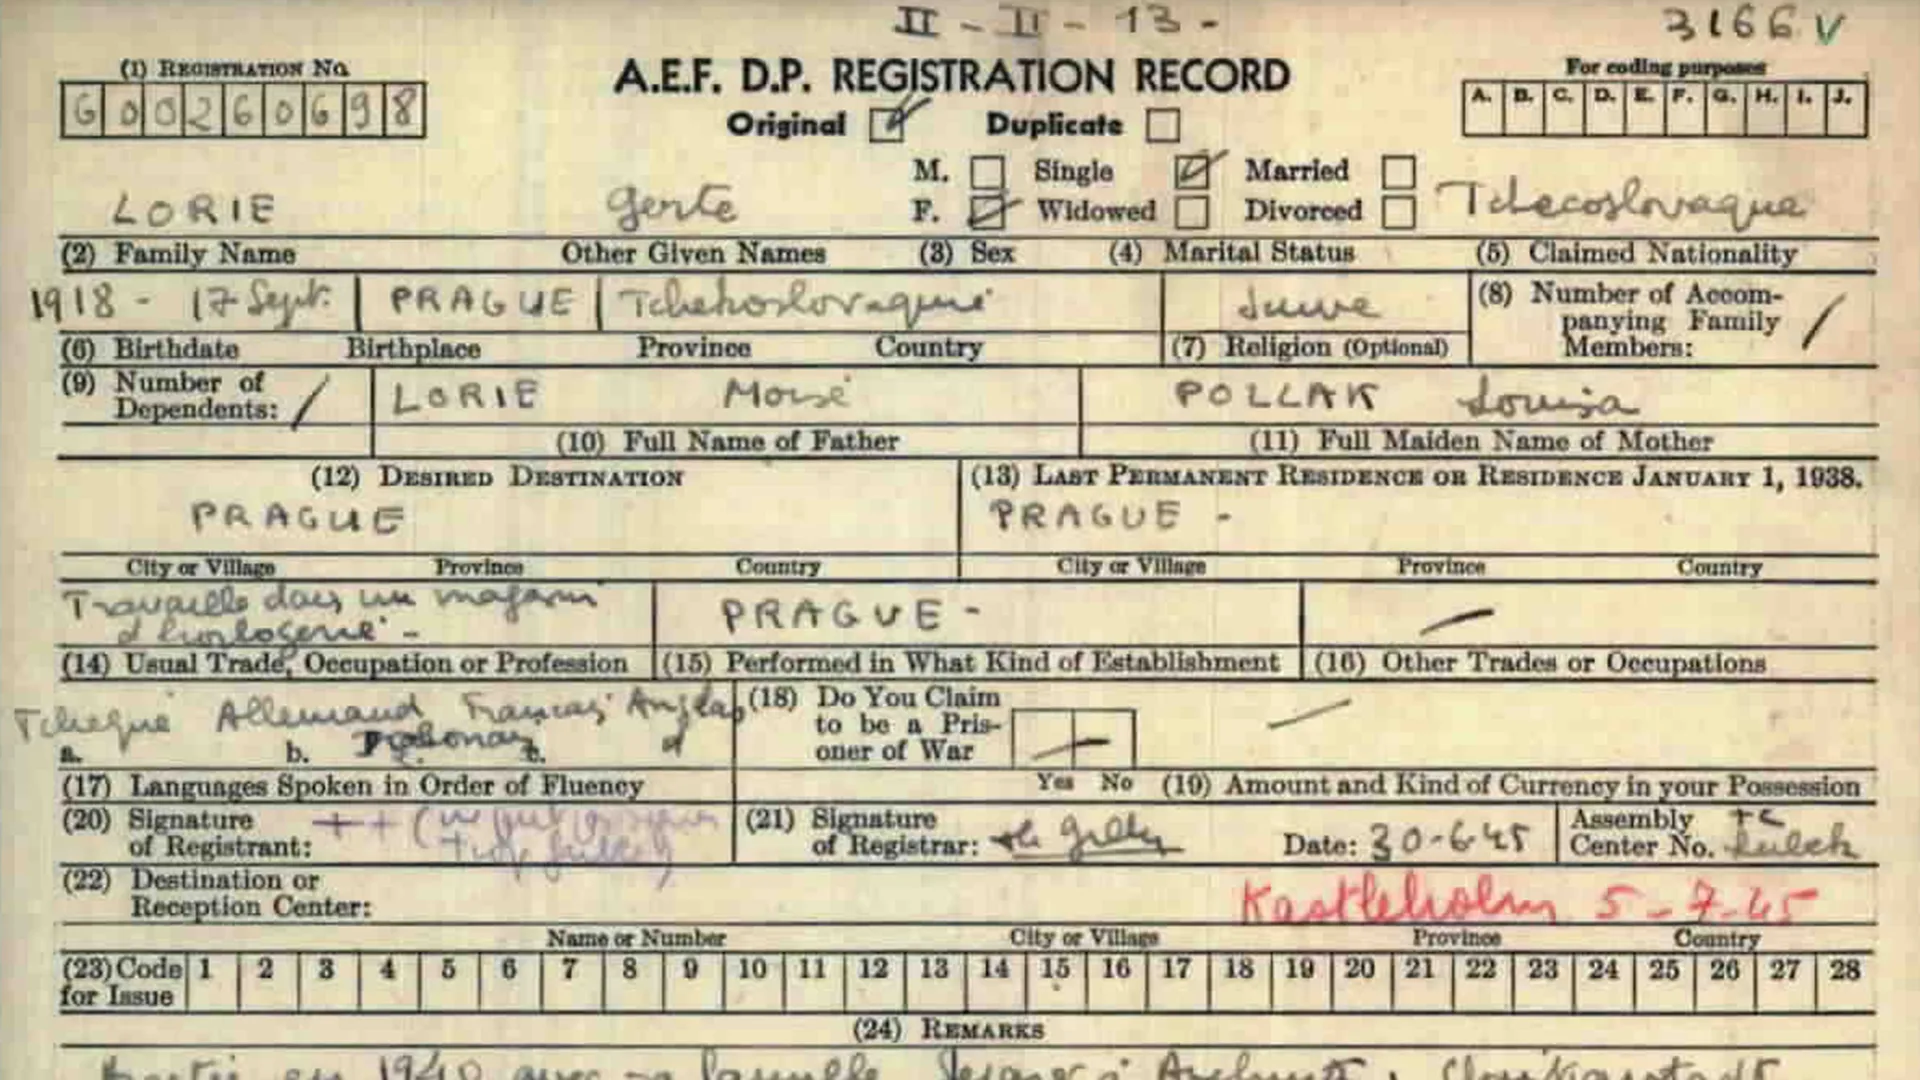 II - II - 13 -
3166 V
(1) REGISTRATION No.
G00260698
A.E.F. D.P. REGISTRATION RECORD
For coding purposes
A. B. C. D. E. F. G. H. I. J.
Original Duplicate
M. Single Married
F. Widowed Divorced
LORIE Gerte Tchecoslovaque
(2) Family Name Other Given Names (3) Sex (4) Marital Status (5) Claimed Nationality
1918 - 17 Sept. PRAGUE Tchekoslovaquie Juive
(8) Number of Accom-
panying Family
Members: /
(6) Birthdate Birthplace Province Country (7) Religion (Optional)
(9) Number of
Dependents: /
LORIE Moïse POLLAK Louisa
(10) Full Name of Father (11) Full Maiden Name of Mother
(12) DESIRED DESTINATION (13) LAST PERMANENT RESIDENCE OR RESIDENCE JANUARY 1, 1938.
PRAGUE PRAGUE -
City or Village Province Country City or Village Province Country
Travaille dans un magasin
d'horlogerie - PRAGUE - —
(14) Usual Trade, Occupation or Profession (15) Performed in What Kind of Establishment (16) Other Trades or Occupations
Tcheque Allemand Francais Anglais
Polonais
a. b. c. d
(18) Do You Claim
to be a Pris-
oner of War
Yes No
(17) Languages Spoken in Order of Fluency (19) Amount and Kind of Currency in your Possession
(20) Signature
of Registrant: ++
(21) Signature
of Registrar:
Date: 30-6-45
Assembly
Center No.
(22) Destination or
Reception Center:
Kastleholm 5-7-45
Name or Number City or Village Province Country
(23) Code
for Issue
1 2 3 4 5 6 7 8 9 10 11 12 13 14 15 16 17 18 19 20 21 22 23 24 25 26 27 28
(24) REMARKS
en 1940 avec sa famille